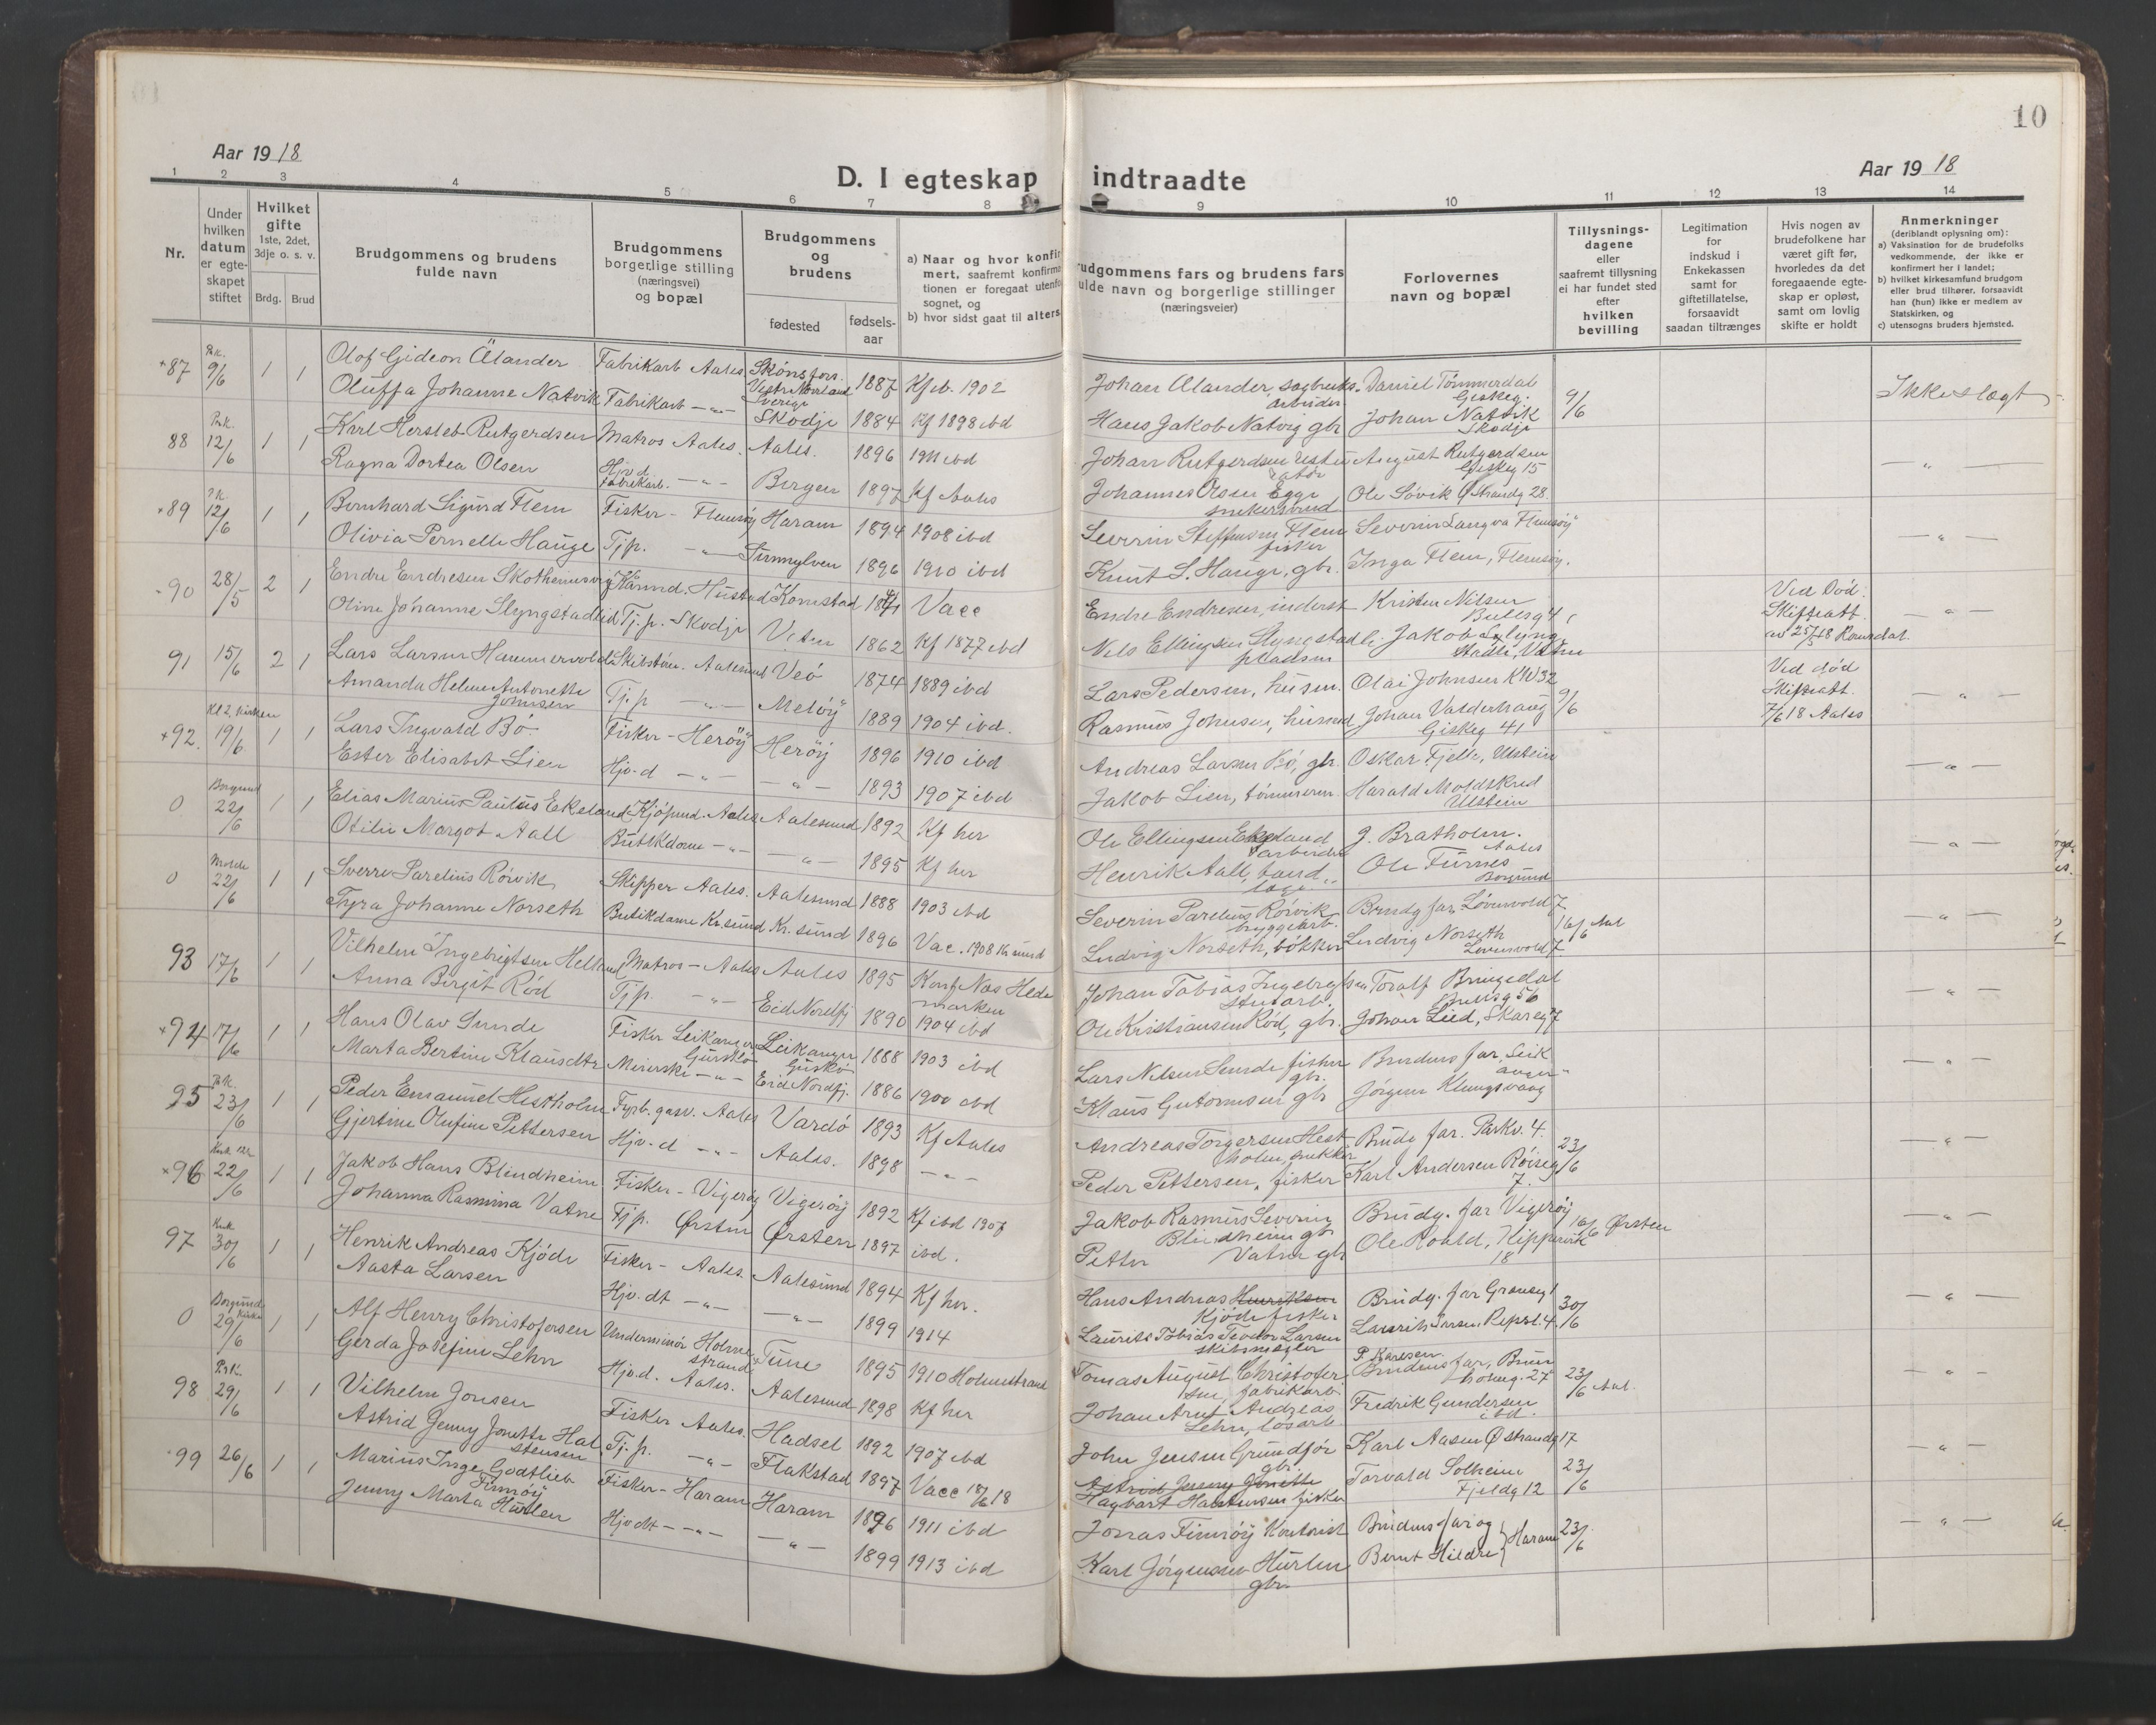 10
Aar 19 18
Aar 19 18
D. I egteskap indtraadte
1 2 3 4 5 6 7 8 9 10 11 12 13 14
Nr.
Under hvilken datum er egteskapet stiftet
Hvilket gifte 1ste, 2det, 3dje o. s. v.
Brdg. Brud
Brudgommens og brudens fulde navn
Brudgommens borgerlige stilling (næringsvei) og bopæl
Brudgommens og brudens
fødested
fødsels-aar
a) Naar og hvor konfir
mert, saafremt konfirma
tionen er foregaat utenfo
sognet, og
b) hvor sidst gaat til alters
udgommens fars og brudens fars
ulde navn og borgerlige stillinger
(næringsveier)
Forlovernes navn og bopæl
Tillysnings-dagene eller saafremt tillysning ei har fundet sted efter hvilken bevilling
Legitimation for indskud i Enkekassen samt for giftetillatelse, forsaavidt saadan tiltrænges
Hvis nogen av brudefolkene har været gift før, hvorledes da det foregaaende egteskap er opløst, samt om lovlig skifte er holdt
Anmerkninger
(deriblandt oplysning om):
a) Vaksination for de brudefolks vedkommende, der ikke er konfirmert her i landet;
b) hvilket kirkesamfund brudgom eller brud tilhører, forsaavidt han (hun) ikke er medlem av Statskirken, og
c) utensogns bruders hjemsted.
+87 9/6 1 1 Olof Gideon Ålander Fabrikarb Aales. Skönsfors. Sverige 1887 Kf ib. 1902 Johan Ålander, sagbruks. arbeider Daniel Tömmerdal Giskeg. 9/6 Ikke slegt
Oluffa Johanne Natvik Fabrikarb -"- Skodje 1884 Kf 1898 ibd Hans Jakob Natvig gbr Johan Natvik Skodje
88 12/6 1 1 Karl Hersleb Rutgerdsen Matros Aales. Aales. 1896 1911 ibd Johan Rutgerdsen August Rutgerdsen Giskeg 15 -"-
Ragna Dortea Olsen Hjv.d. Fabrikarb. -"- Bergen 1897 Kf Aales Johannes Olsen Egge snekkersvend Ole Sövik Ø Strandg 28.
+89 12/6 1 1 Bernhard Sigurd Flem Fisker - Flemsöy Haram 1894 1908 ibd Severin Steffensen Flem fisker Severin Langva Flemsöy -"-
Olivia Pernelle Hauge Tjp. -"- Sunnylven 1896 1910 ibd Knut S. Hauge, gbr. Inga Flem, Flemsöy.
90 28/5 2 1 Endre Endresen Kaarmd. Hustad Kornstad Vacc Endre Endresen, inderst Kristen Nilsen Bullsg 4 Ved Död. Skifteatt. av 25/5 18 Romsdal. -"-
Oline Johanne Slyngstadlid Tj.p. Skodje Vatne 1862 Kf 1877 ibd Nils Ellingsen Slyngstadli pladsm Jakob Slyngstadli, Vatne
91 15/6 2 1 Lars Larsen Hammervold Aalesund Veö 1874 1889 ibd Lars Pedersen, husm. Olai Johnsen K W 32 9/6 Ved död Skifteatt. 7/6 18 Aales -"-
Amanda Helene Antonette Johnsen Tj.p -"- Melöy 1889 1904 ibd. Rasmus Johnsen, husmd Johan Valderhaug Giskeg 41
+92. Kl 2, Kirken 19/6 1 1 Lars Ingvald Bö Fisker - Heröy Heröy 1896 1910 ibd Andreas Larsen Bö, gbr. Oskar Fjelle, Ulstein -"-
Ester Elisabet Lien Hjv.d -"- -"- 1893 1907 ibd Jakob Lien, tömmerm. Harald Moldskred Ulstein
0 Borgund 22/6 1 1 Elias Marius Paulus Ekeland Kjöpmd. Aales Aalesund 1892 Kf her Ole Ellingsen Ekeland arbeider J. Bratholm. Aales -"-
Otilie Margot Aall Butikdame -"- -"- 1895 Kf her Henrik Aall, tandlæge Ole Furnes Borgund
0 Molde 22/6 1 1 Sverre Parelius Rörvik Skipper Aales. Aalesund 1888 1903 ibd Severin Parelius Rörvik bryggearb. Brudg far, Lövenvold 7 16/6 Aal -"-
Tyra Johanne Norseth Butikdame Kr.sund Kr. sund 1896 Vac. 1908 Kr sund Ludvig Norseth, bökker Ludvig Norseth Lövenvold 7
93 17/6 1 1 Vilhelm Ingebrigtsen Helland Matros - Aales Aales 1895 Konf Næs Hedemarken Johan Tobias Ingebrigtsen Toralf Bringsdal Bullsg 56 -"-
Anna Birgit Röd Tjp. -"- Eid Nordfj 1890 1904 ibd Ole Kristiansen Röd, gbr. Johan Lied, Skareg 7
+94 17/6 1 1 Hans Olav Sunde Fisker Leikanger Gurskö Leikanger Gurskö 1888 1903 ibd Lars Nilsen Sunde fisker gbr. Brudens far, Leikanger -"-
Marta Bertine Klausdtr Meierske -"- Eid Nordfj. 1886 1900 ibd Klaus Gutormsen gbr Jörgen Klungsvaag
95 23/6 1 1 Peder Emanuel Hestholm Fyrb. gasv. Aales Vardö 1893 Kf Aales Andreas Torgersen Hestholm, snekker Brudg far. Parkv. 4. 23/6 -"-
Gjertine Olufine Pettersen Hjv.d -"- Aales. 1898 -"- Peder Pettersen, fisker Karl Andersen Röiseg 7.
+96 22/6 1 1 Jakob Hans Blindheim Fisker - Vigeröy Vigeröy 1892 Kf ibd 1907 Jakob Rasmus Severin Blindheim gbr Brudg. far Vigeröy 16/6 Ørsten -"-
Johanna Rasmina Vatne Tjp. Ørsten Ørsten 1897 ibd. Petter Vatne gbr Ole Roald, Kippervik 18
97 Kirk 30/6 1 1 Henrik Andreas Kjöde Fisker - Aales. Aalesund 1894 Kf her. Hans Andreas Henriksen Kjöde fisker Brudg. far Grensg 1 30/6 -"-
Aasta Larsen Hjv. dt -"- -"- 1899 1914 Laurits Tobias Teodor Larsen skibsmægler Laurits Larsen, Repsl. 4.
0 Borgunds Kirke 29/6 1 1 Alf Henry Christofersen Underminör Holmestrand Tune 1895 1910 Holmestrand Tomas August Christofersen, fabrikarb. P. Karlsen. Brudens far, Brunholmg. 27 23/6 Aal. -"-
Gerda Josefine Lehn Hjv.d. Aales. Aalesund 1898 Kf her Johan Arnt Andreas Lehn, lösarb Fredrik Gundersen ibd.
98 29/6 1 1 Vilhelm Jonsen Fisker Aales. Hadsel 1892 1907 ibd John Jensen Grundfjör gbr. Karl Aasen Ø Strandg 17 23/6 -"-
Astrid Jenny Jonette Halstensen Tj.p. -"- Flakstad 1897 Vacc 18/6 18 Astrid Jenny Jonette Hagbart Halstensen fisker Torvald Solheim Fjeldg 12
99 26/6 1 1 Marius Inge Godtlieb Finnöy Fisker - Haram Haram 1896 1911 ibd Jonas Finnöy Kontorist Brudens far og Haram 23/6 -"-
Jenny Marta Hurlen Hjv dt -"- -"- 1899 1913 ibd Karl Jörgensen Hurlen gbr. Bernt Hildre